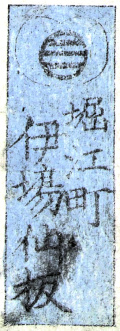 堀江町
伊場仙板